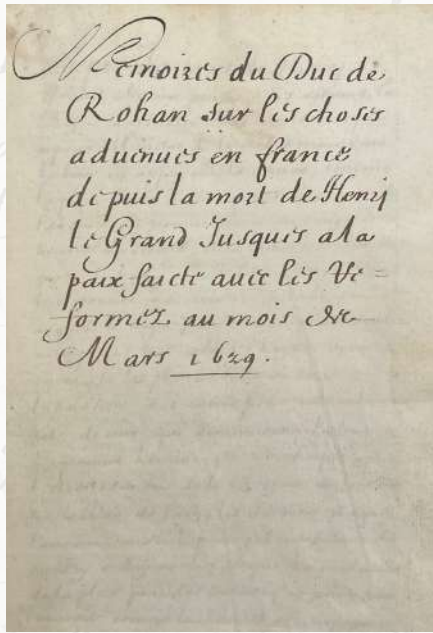 Memoires du Duc de
Rohan sur les choses
aduenues en france
depuis la mort de Henry
le Grand Jusques a la
paix faicte auec les Re=
formez au mois de
Mars 1629.